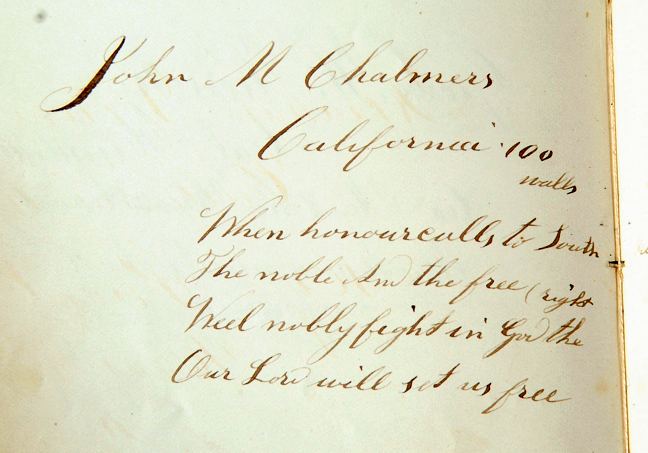 John M Chalmers
California 100
walls
When honour calls to South
The noble And the free (right
Weel nobly fight in God the
Our Lord will set us free